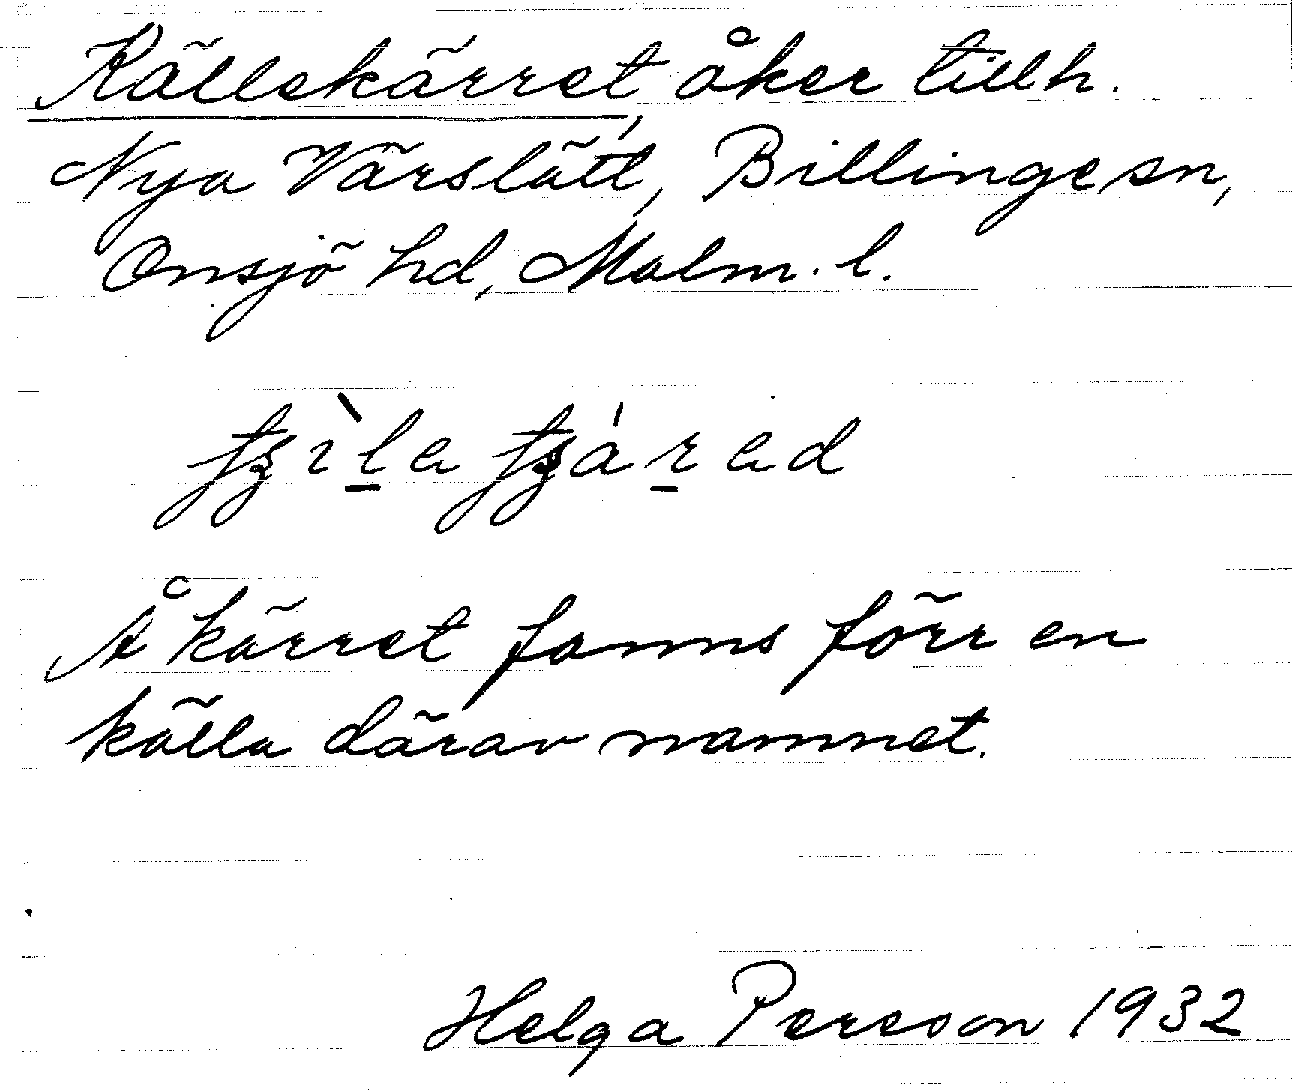 Källekärret, åker tillh.
Nya Värslätt, Billinge sn,
Onsjö hd, Malm. l.
Å kärret fanns förr en
källa därav namnet.
Helga Person 1932